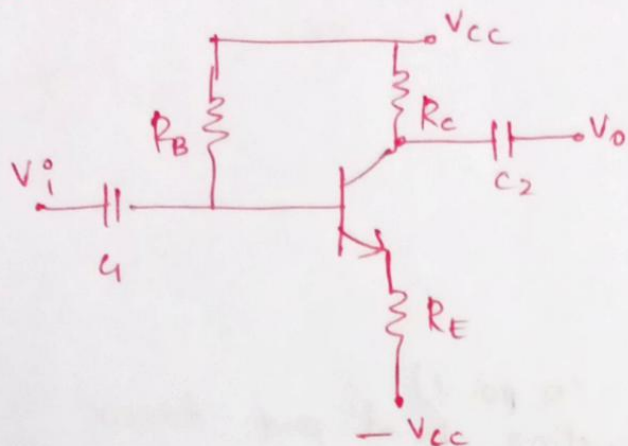 VCC
RB
RC
C2
Vo
Vi
C1
RE
- VCC